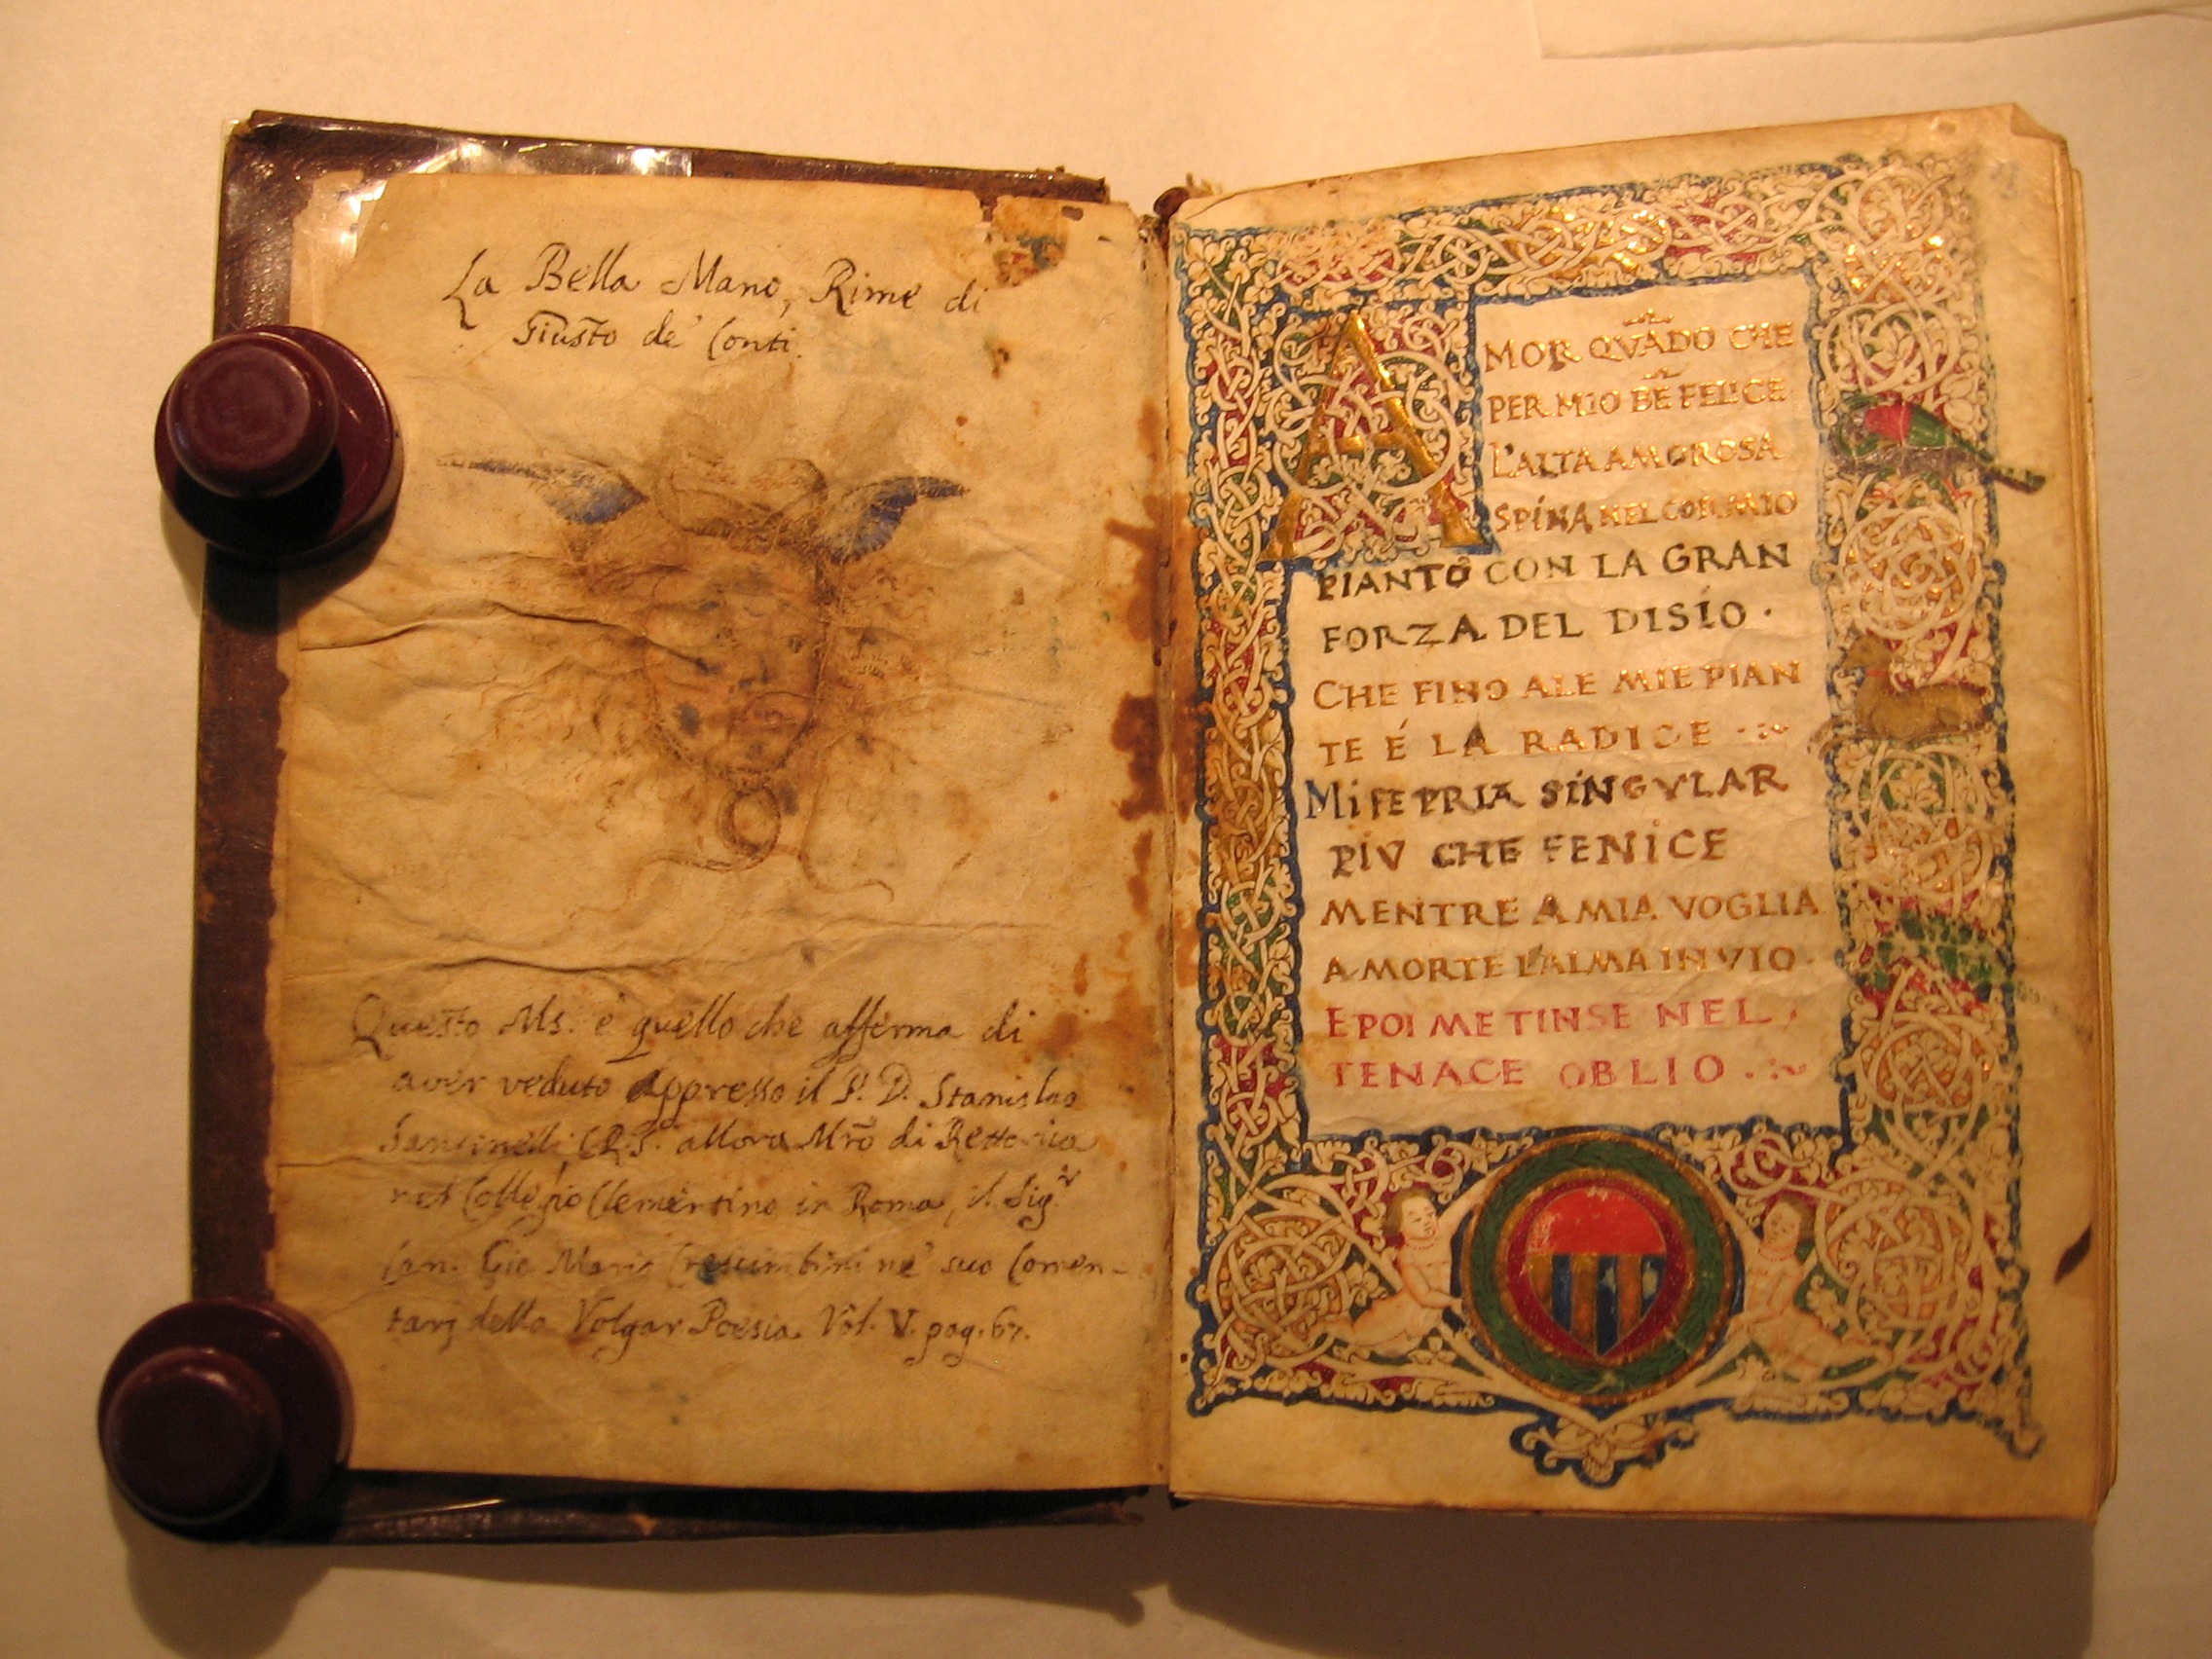 La Bella Mano, Rime di
Giusto de' Conti.
Questo Ms. è quello che afferma di
aver veduto appresso il P. D. Stanislao
Santinelli C.R.S. allora Mro di Rettorica
nel Collegio Clementino in Roma, il Sigr
Can. Gio. Maria Crescimbini ne' suo Comen-
tarj della Volgar Poesia. Vol. V. pag. 67.
AMOR QVĀDO CHE
PER MIO BĒ FELICE
L'ALTA AMOROSA
SPINA NEL COR MIO
PIANTO CON LA GRAN
FORZA DEL DISIO ·
CHE FINO ALE MIE PIAN
TE É LA RADICE ·:~
MI FE PRIA SINGVLAR
PIV CHE FENICE
MENTRE A MIA VOGLIA
A MORTE L'ALMA INVIO ·
E POI ME TINSE NEL
TENACE OBLIO ·:~